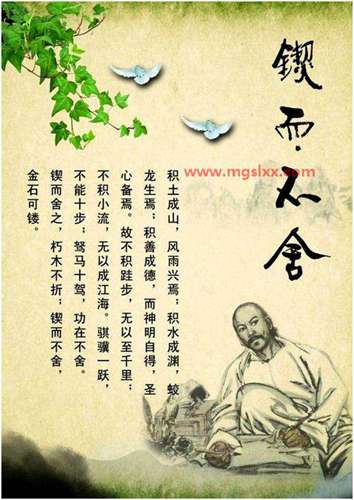 锲而不舍
www.mgslxx.com
积土成山，风雨兴焉；积水成渊，蛟
龙生焉；积善成德，而神明自得，圣
心备焉。故不积跬步，无以至千里；
不积小流，无以成江海。骐骥一跃，
不能十步；驽马十驾，功在不舍。
锲而舍之，朽木不折；锲而不舍，
金石可镂。